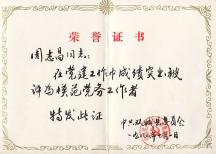 荣誉证书
周志昌同志:
在党建工作中成绩突出被
评为模范党务工作者
特发此证
中共
委员会